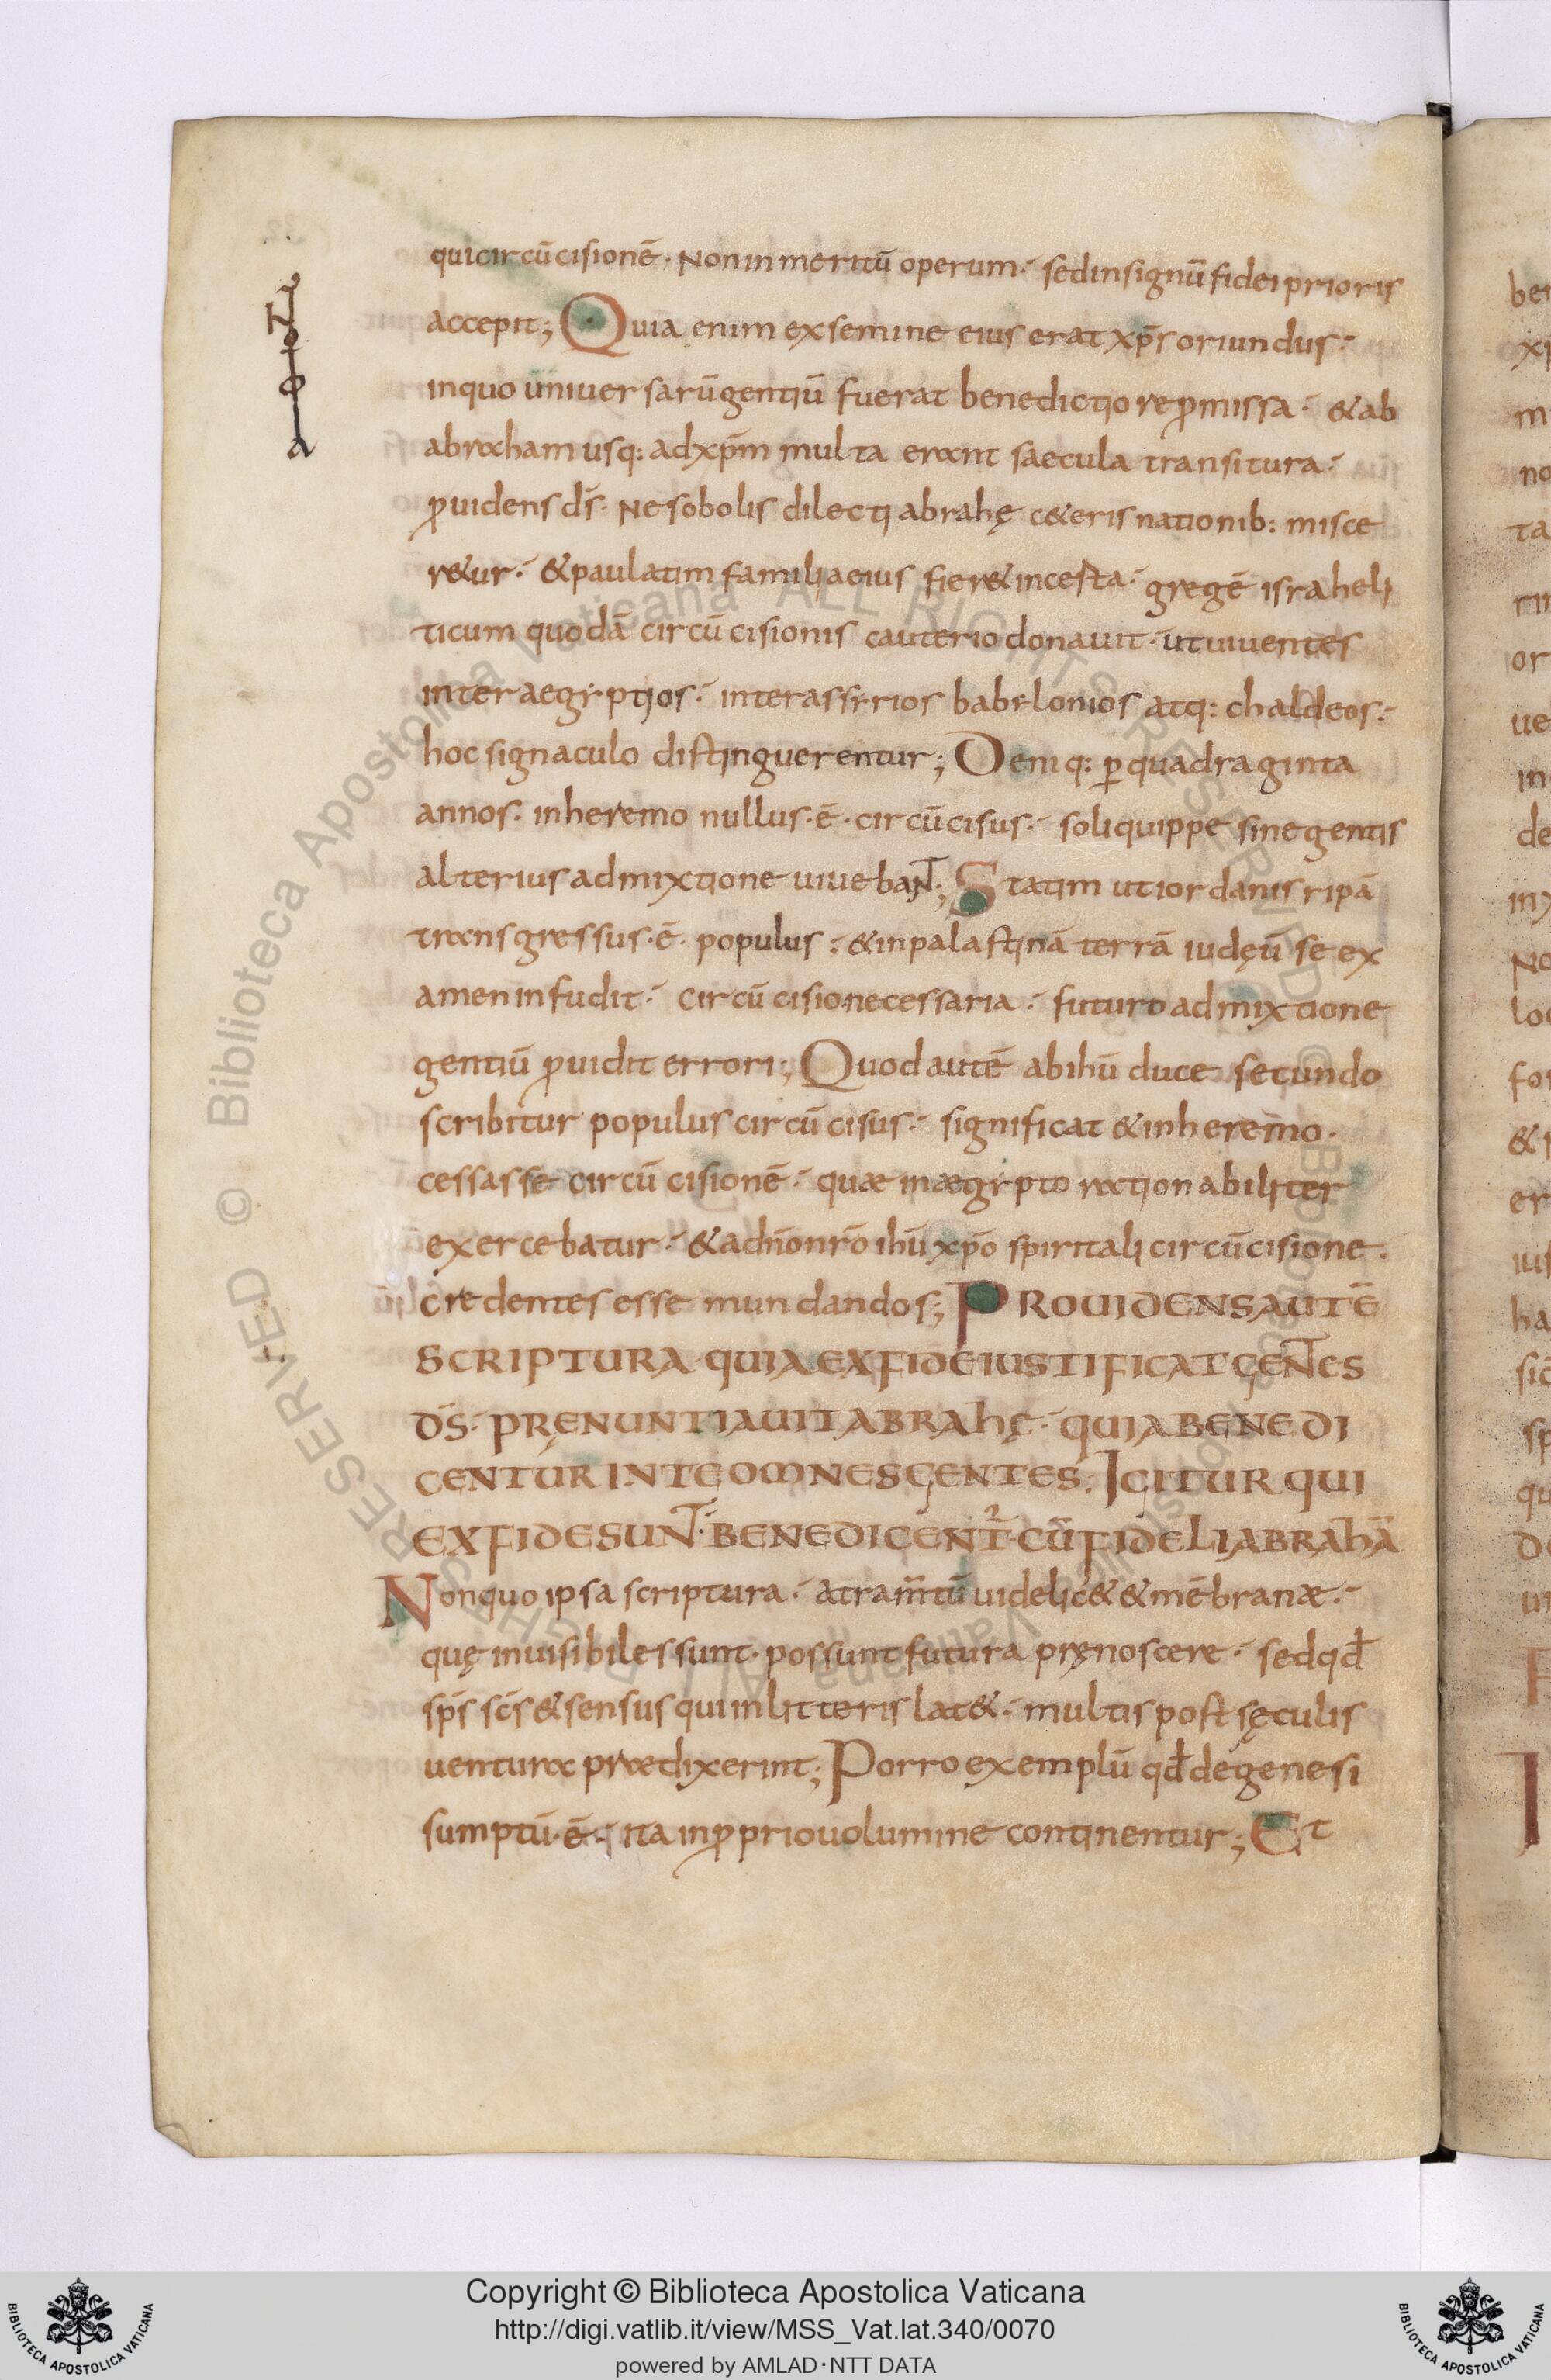 Nota
quicircūcisionē · Non in meritū operum · sed in signū fidei prioris
accepit; Quia enim ex semine eius erat xp̄s oriundus ·
in quo uniuersarū gentiū fuerat benedictio reꝓmissa · & ab
abraham usq: ad xp̄m multa erant saecula transitura ·
ꝓuidens d̄s · Ne sobolis dilecti abrahę c&eris nationib: misce
r&ur · & paulatim familia eius fier& incesta · gregē israheli
ticum quodā circūcisionis cauterio donauit · ut uiuentes
inter aegẏptios · inter assẏrios babẏlonios atq: chaldeos ·
hoc signaculo distinguerentur; Deniq: ꝑ quadraginta
annos · in heremo nullus · ē · circūcisus · soli quippe sine gentis
alterius admixtione uiuebaNT; Statim ut iordanis ripā
transgressus · ē · populus · & in palastinā terrā iudęū se ex
amen infudit · circūcisio necessaria · futuro admixtione
gentiū ꝓuidit errori; Quod autē ab ihū duce secundo
scribitur populus circūcisus · significat & in heremo ·
cessasse circūcisionē · quæ in ægẏpto rationabiliter
exercebatur · & a dn̄o nr̄o ihū xp̄o spiritali circūcisione ·
credentes esse mundandos; PROUIDENS AUTĒ
SCRIPTURA · QUIA EX FIDE IUSTIFICAT GENTES
D̄S · PRĘNUNTIAUIT ABRAHĘ · QUIA BENEDI
CENTUR IN TE OMNES GENTES; IGITUR QUI
EX FIDE SUNT · BENEDICENT᷑ · CŪ FIDELI ABRAHĀ
Non quo ipsa scriptura · atram̄tū uidelic& & mēbranæ ·
quę inuisibiles sunt · possunt futura pręnoscere · sed qd̄
sp̄s sc̄s & sensus qui in litteris lat& · multis post sęculis
uentura praedixerint; Porro exemplū qd̄ de genesi
sumptū · ē · ita in ꝓprio uolumine continentur; Et
Copyright © Biblioteca Apostolica Vaticana
http://digi.vatlib.it/view/MSS_Vat.lat.340/0070
powered by AMLAD·NTT DATA